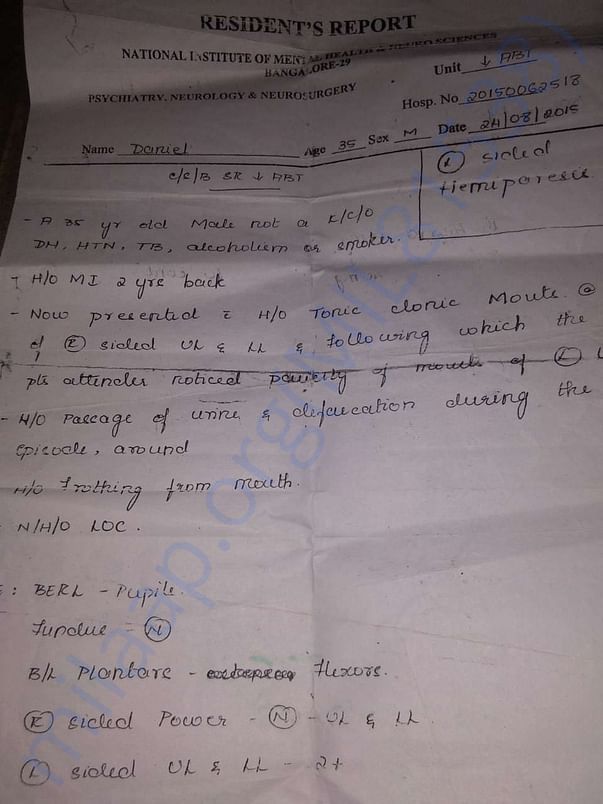 RESIDENT'S REPORT
NATIONAL INSTITUTE OF MENTAL HEALTH & NEURO SCIENCES
BANGALORE-29
Unit ↓ ABT
PSYCHIATRY, NEUROLOGY & NEUROSURGERY
Hosp. No 20150062518
Name Daniel Age 35 Sex M Date 24/08/2015
C/S/B SR ↓ ABT
Ⓛ sided
Hemiparesis
- A 35 yr old Male not a K/C/O
DM, HTN, TB, alcoholism or smoker.
- H/O MI 2 yrs back
- Now presented c̄ H/O Tonic clonic Movts. @
of Ⓡ sided UL & LL & following which the
pts attender noticed of Ⓛ
- H/O Passage of urine & defecation during the
episode, around
H/O Frothing from mouth.
- N/H/O LOC.
: BERL - Pupils.
Fundus = Ⓝ
B/L Plantars - Flexors.
Ⓡ sided Power - Ⓝ - UL & LL.
Ⓛ sided UL & LL - 2+
milaap.org